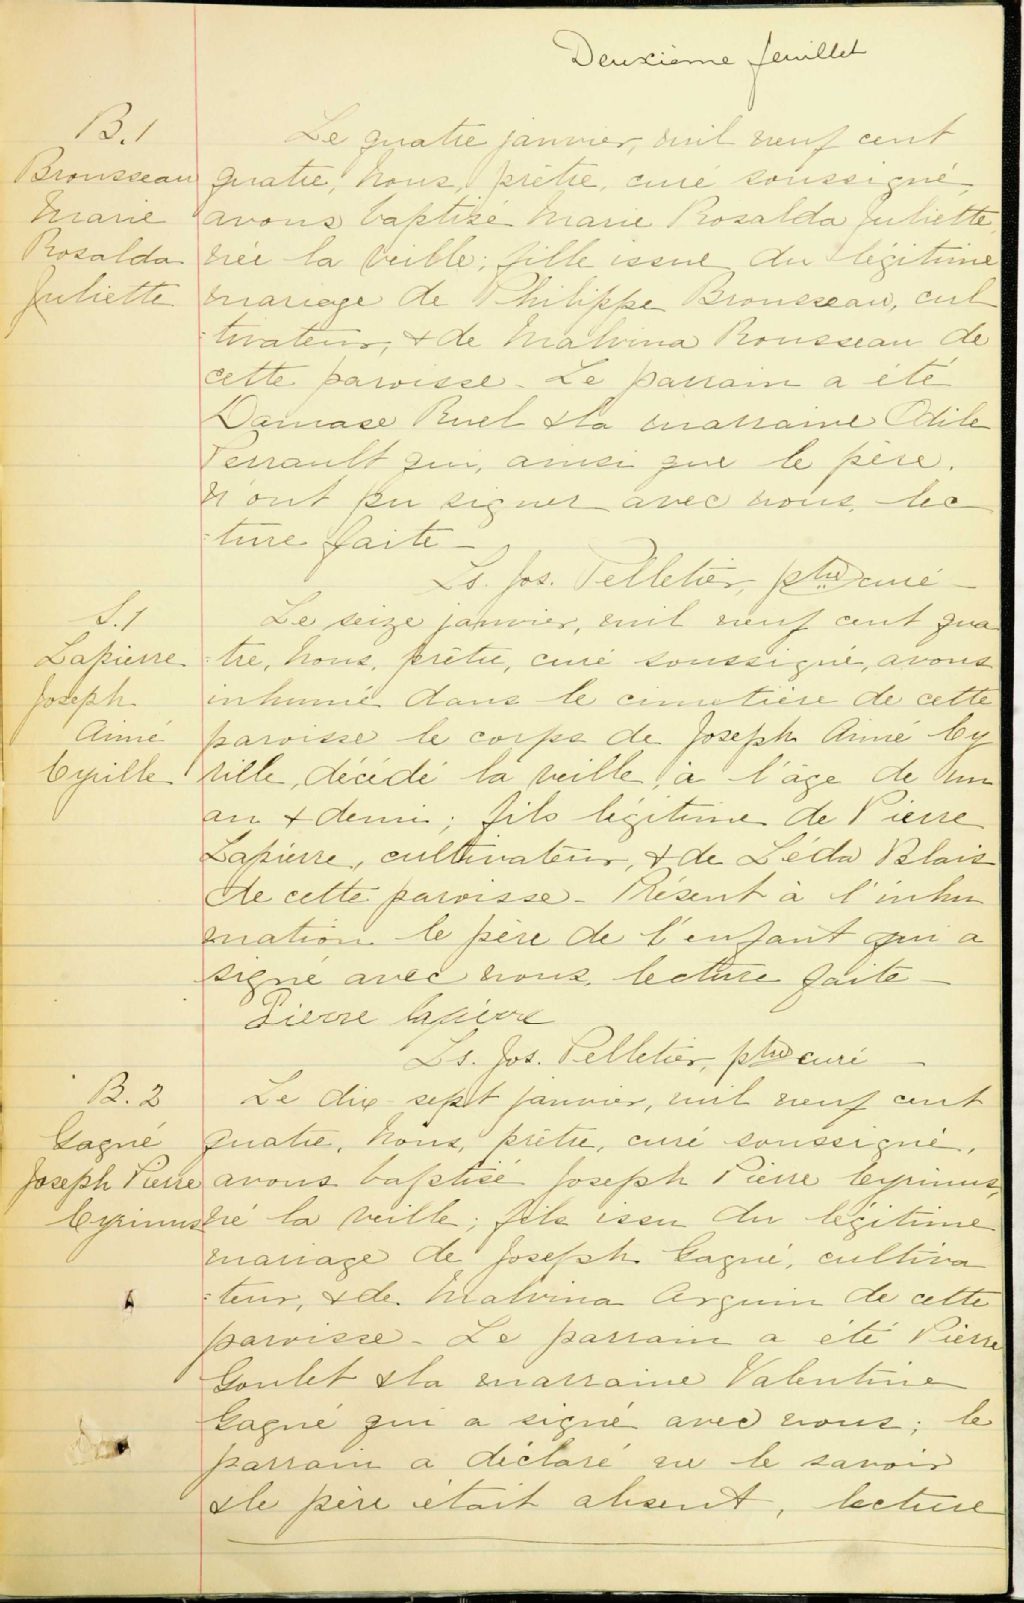 Deuxième feuillet
B.1
Brousseau
Marie
Rosalda
Juliette
Le quatre janvier, mil neuf cent
quatre, Nous, prêtre, curé soussigné,
avons baptisé Marie Rosalda Juliette,
née la veille; fille issue du légitime
mariage de Philippe Brousseau, cul
:tivateur, & de Malvina Rousseau de
cette paroisse - Le parrain a été
Damase Ruel & la marraine Odile
Perrault qui, ainsi que le père,
n'ont pu signer avec nous, lec
:ture faite -
Ls. Jos. Pelletier, ptre curé -
S.1
Lapierre
Joseph
Aimé
Cyrille
Le seize janvier, mil neuf cent qua
:tre, Nous, prêtre, curé soussigné, avons
inhumé dans le cimetière de cette
paroisse le corps de Joseph Aimé Cy
rille, décédé la veille, à l'âge de un
an & demi; fils légitime de Pierre
Lapierre, cultivateur, & de Léda Blais
de cette paroisse - Présent à l'inhu
mation le père de l'enfant qui a
signé avec nous, lecture faite -
Pierre lapierre
Ls. Jos. Pelletier, ptre curé -
B. 2
Gagné
Joseph Pierre
Cyrinus
Le dix-sept janvier, mil neuf cent
quatre, Nous, prêtre, curé soussigné,
avons baptisé Joseph Pierre Cyrinus,
né la veille; fils issu du légitime
mariage de Joseph Gagné, cultiva
:teur, & de Malvina Arguin de cette
paroisse - Le parrain a été Pierre
Goulet & la marraine Valentine
Gagné qui a signé avec nous; le
parrain a déclaré ne le savoir
& le père était absent, lecture